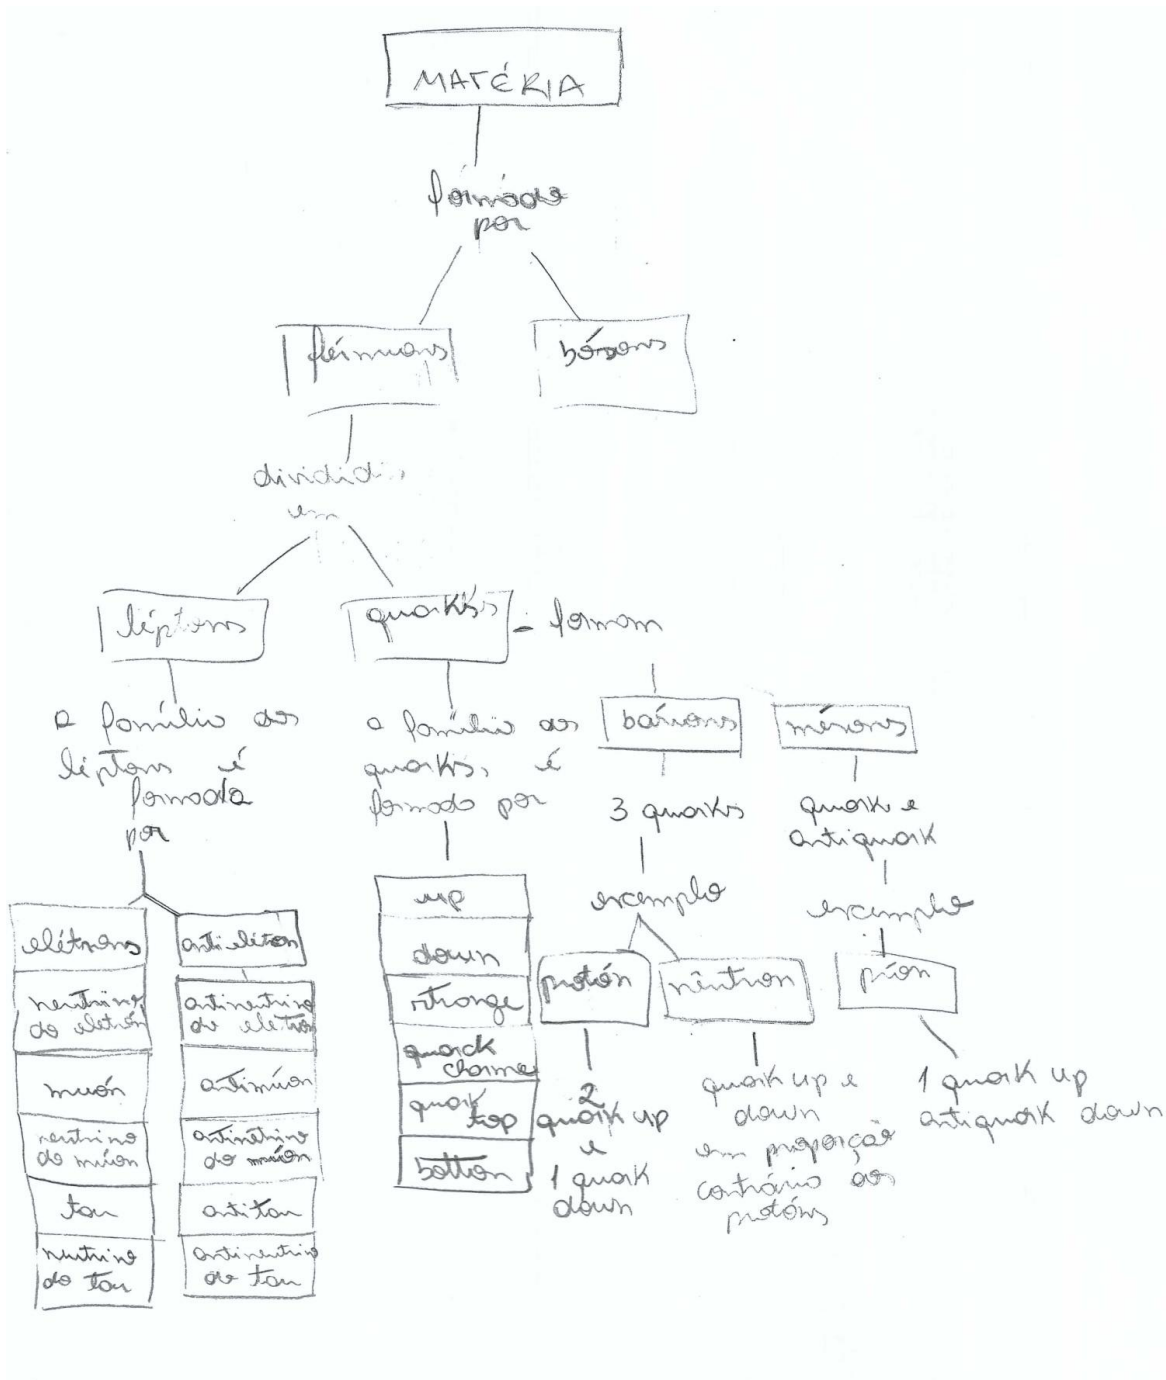 MATÉRIA
formado
por
férmions
bósons
dividido
em
léptons
quarks
formam
a família dos
léptons é
formada
por
a família dos
quarks, é
formado por
bárions
mésons
3 quarks
quark e
antiquark
exemplo
exemplo
elétrons
neutrino
do elétron
muón
neutrino
do múon
tau
neutrino
do tau
antielétron
antineutrino
do elétron
antimúon
antineutrino
do múon
antitau
antineutrino
do tau
up
down
strange
quarck
charme
quark
top
botton
protón
nêutron
píon
2
quark up
e
1 quark
down
quark up e
down
em proporção
contrário aos
protóns
1 quark up
antiquark down